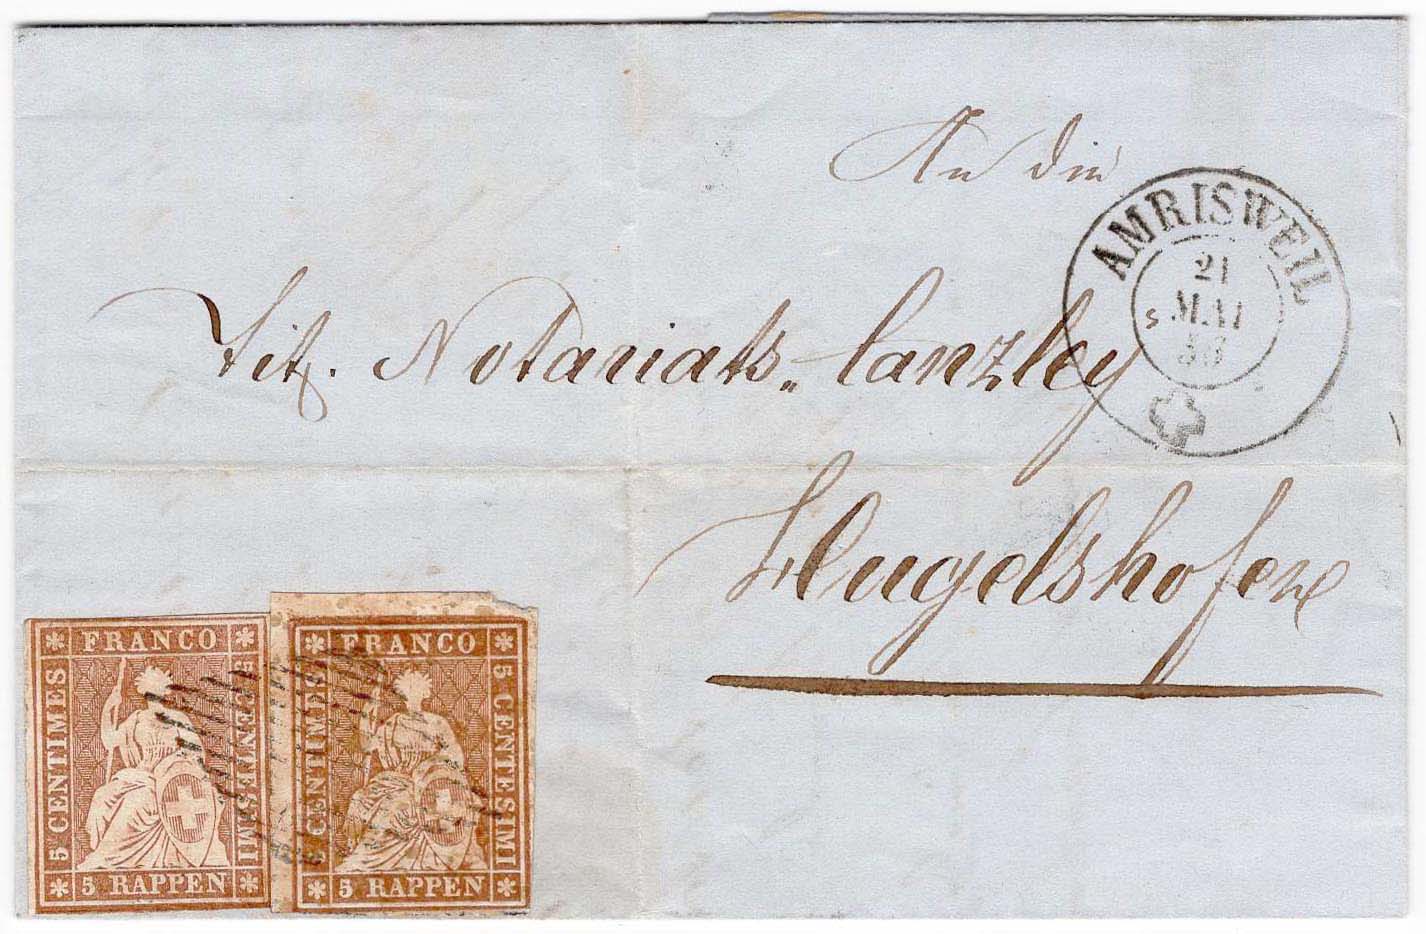 An die
AMRISWEIL
21
MAI
56
S
Tit. Notariats„ Canzley
Hugelshofen
FRANCO
5 CENTIMES
5 CENTESIMI
5 RAPPEN
FRANCO
5 CENTIMES
5 CENTESIMI
5 RAPPEN